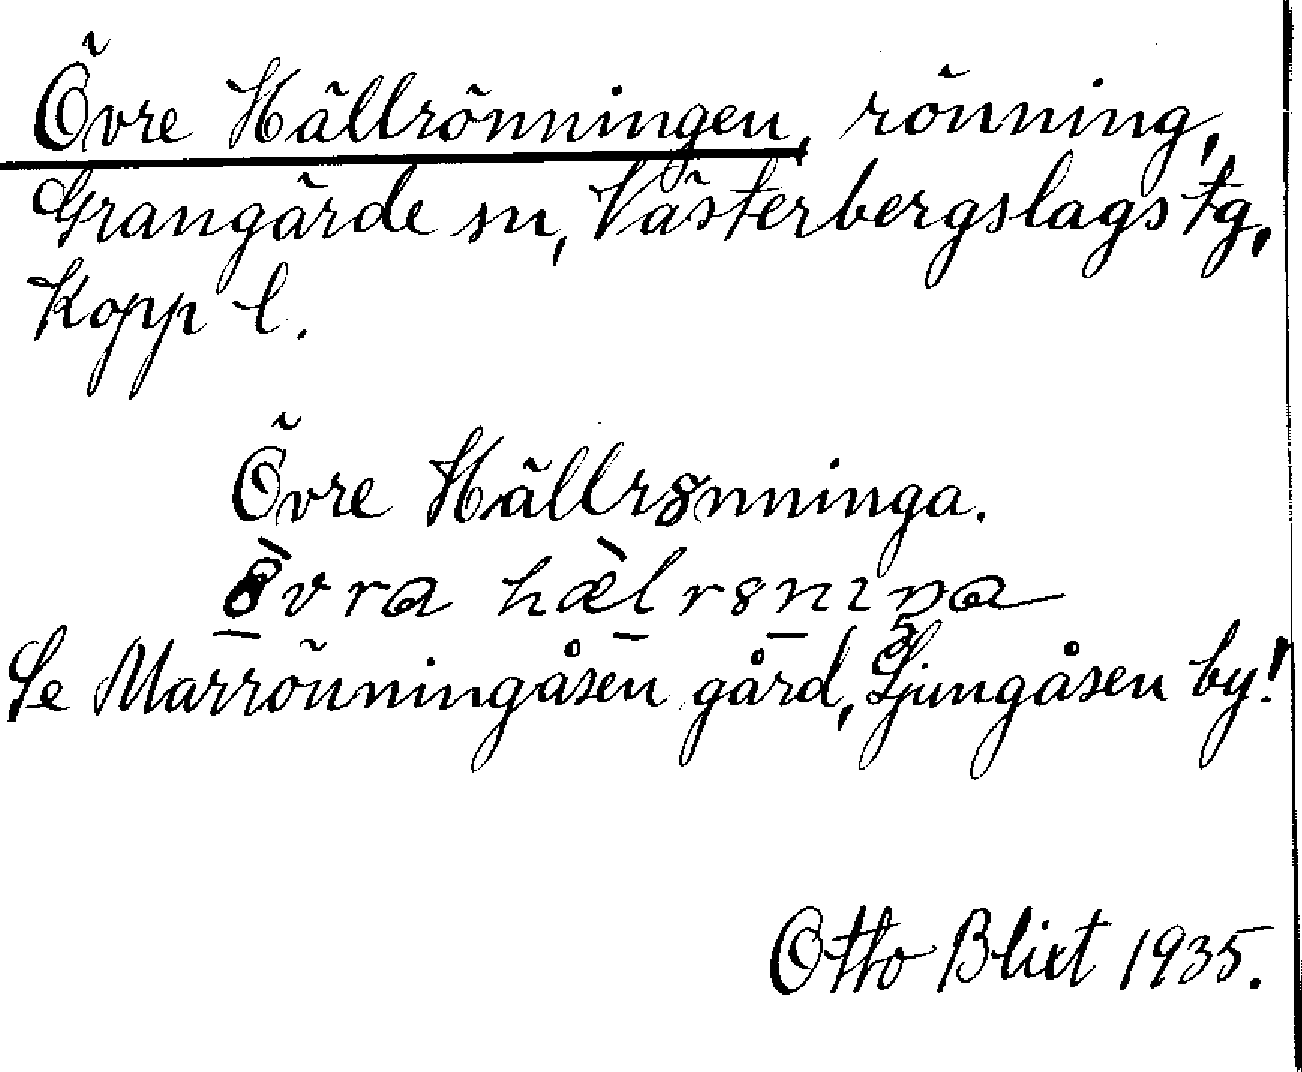 Övre Hällrönningen, rönning,
Grangärde sn, Västerbergslags tg,
Kopp l.
Övre Hällrȣnninga.
ȣ̀vra hæ̀lrȣnıŋa
Se Marrönningåsen gård, Ljungåsen by!
Otto Blixt 1935.